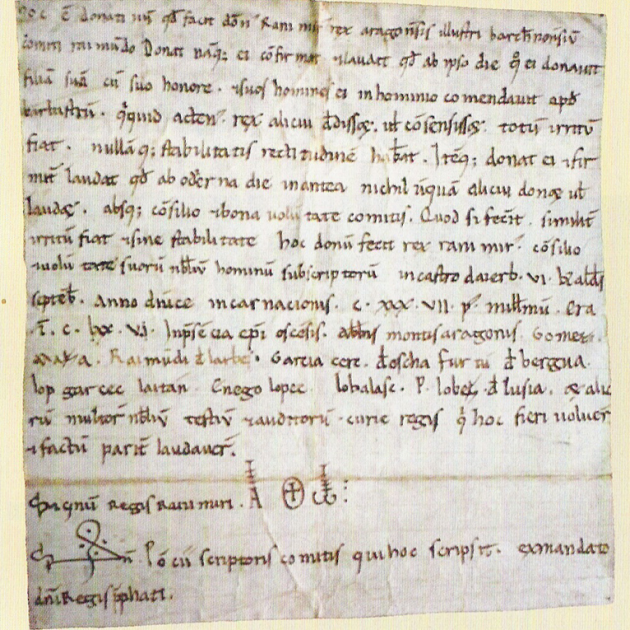 hoc ē donatiuū qd facit dōn Ranimir rex aragonēsis illustri barchinonēsiū
comiti raimundo Donat naq; ei cōfirmat ⁊ laudat qd ab ipso die q̄ ei donauit
filiā suā cū suo honore. ⁊ suos homines ei in hominio comendauit apd
barbastrū. q̄quid acten' rex alicui dedisset. ut cōsensisset. totū irritū
fiat. nullāq; stabilitatis rectitudinē habeat. Iteq; donat ei ⁊ fir
mit laudat qd ab oderna die in antea nichil unquā alicui donet ut
laudet. absq; cōsilio ⁊ bona uolūtate comitis. Quod si fecit. similit
irritū fiat ⁊ sine stabilitate hoc donū fecit rex ranimir. cōsilio
⁊ uolūtate suorū nbliū hominū subscriptorū in castro daierb. VI. kalds
septēb. Anno dnice incarnacionis. C. XXX. VII. p' millmū. Era
T. C. LXX. VI. In psēcia epi oscēsis. abbis montisaragonis. Gomez.
Raimūdi d larbes. Garcia cere. doscha Furtū d bergua.
lop garcec laitan. Enego lopec. lobalasc. P. lobec. d lusia. & alio
rū multor nbliū testiū ⁊ auditorū curie regis q̄ hoc fieri uoluer
⁊ factū parit laudauer.
Signū Regis Ranimiri. A ω
S n. Pōcii scriptoris comitis qui hoc scripsit. ex mandato
dni Regis pphati.